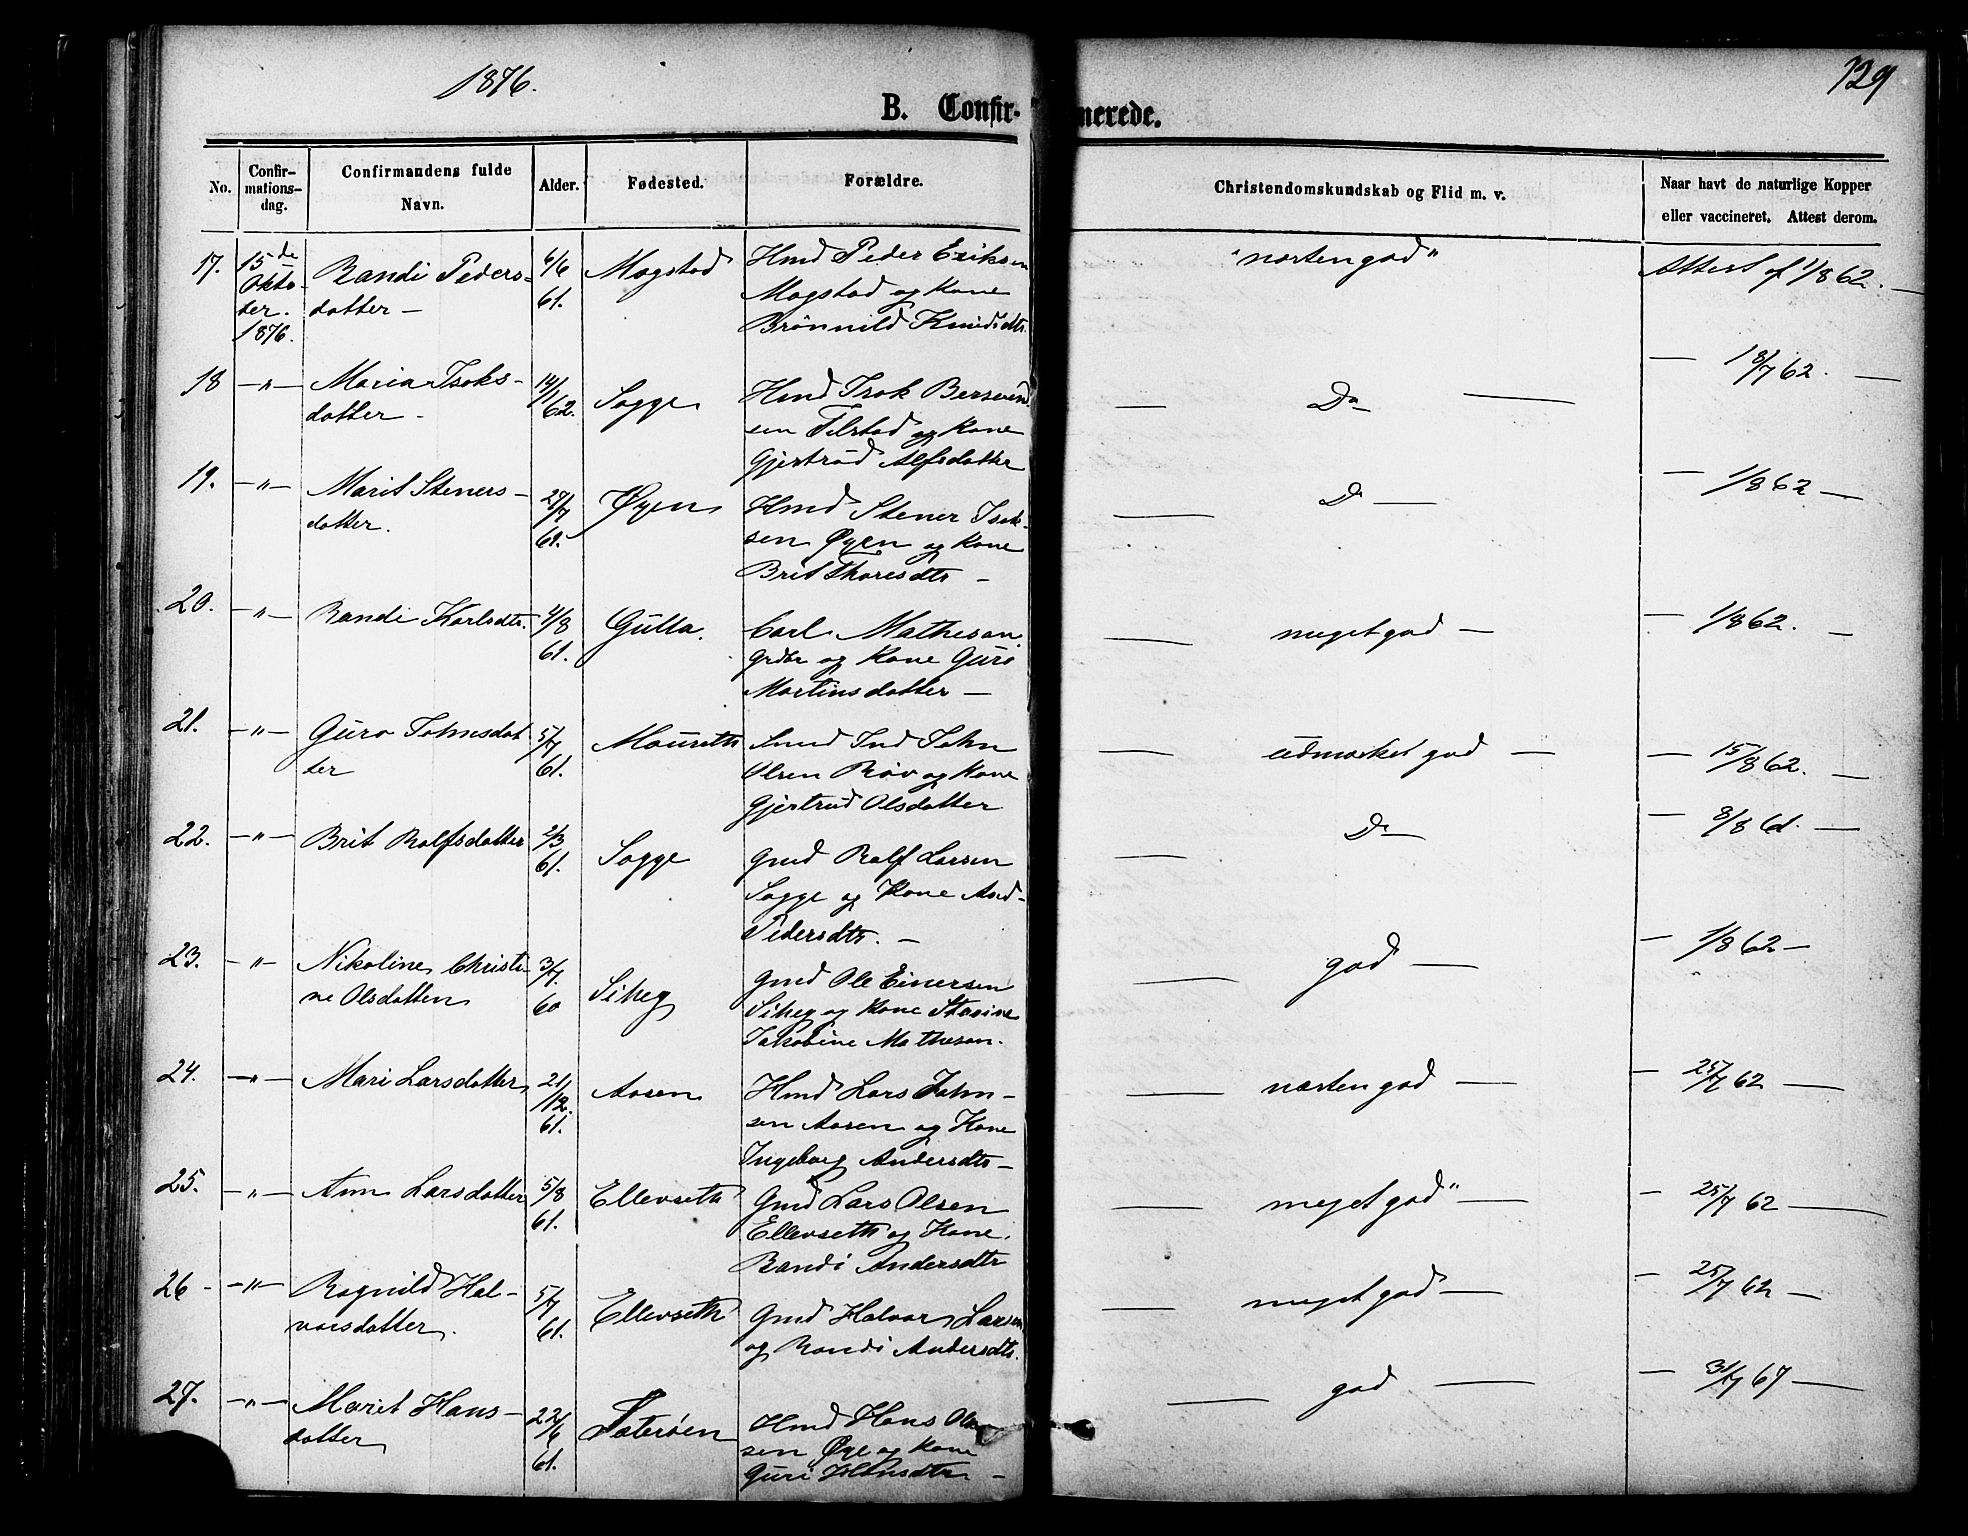 1876.
129
B. Confir-
merede.
No.
Confir-
mations-
dag.
Confirmandens fulde
Navn.
Alder.
Fødested.
Forældre.
Christendomskundskab og Flid m. v.
Naar havt de naturlige Kopper
eller vaccineret. Attest derom.
17.
15de
Okto-
ber.
1876.
Randi Peders-
datter —
6/6
61.
Magstad
Hmd Peder Eriksen
Magstad og Kone
Brönnild Knudsdtr.
"næsten god"
Attest af 1/8 62. —
18 —"— Maria Isaks-
datter —
14/1
62.
Sogge
Hmd Isak Bersvend
sen Tilstad og Kone
Gjertrud Alfsdatter
— Do —
— 18/7 62. —
19. —"— Marit Steners-
datter.
28/7
61.
Øyen
Hmd Stener Isak-
sen Øyen og Kone
Brit Thoresdtr —
— Do —
— 1/8 62 —
20. —"— Randi Karlsdtr.
4/8
61.
Gulla.
Carl Mathesan
grdbr og Kone Guro
Martinsdatter —
— meget god —
— 1/8 62. —
21. —"— Guro Johnsdat
ter
5/7
61.
Mauseth
Smd Ind John
Olsen Röv og Kone
Gjertrud Olsdatter
— udmærket god —
— 15/8 62. —
22. —"— Brit Rolfsdatter
2/3
61.
Sogge
Gmd Rolf Larsen
Sogge og Kone Ased
Pedersdtr. —
— Do —
— 8/8 61. —
23. —"— Nikoline Christi-
ne Olsdatter
3/7.
60
Siheg
Gmd Ole Einersen
Siheg og Kone Stavine
Jakobine Mathesen.
— god —
— 1/8 62 —
24. —"— Mari Larsdatter
21/12.
61.
Aasen
Hmd Lars John-
sen Aasen og Kone
Ingeborg Andersdtr —
— næsten god —
— 25/7 62 —
25. —"— Ann Larsdatter
5/8
61.
Ellevseth
Gmd Lars Olsen
Ellevseth og Kone
Randi Andersdtr
— meget god" —
— 25/7 62 —
26 - —"— Ragnild Hal-
vorsdatter.
5/7
61.
Ellevseth
Gmd Halvor Larsen
og Randi Andersdtr.
— meget god —
— 25/7 62 —
27. —"— Marit Hans-
datter
22/6
61.
Sæterøen
Hmd Hans Ol
sen Øye og Kone
Guri Hansdtr —
— god —
— 31/7 67 —